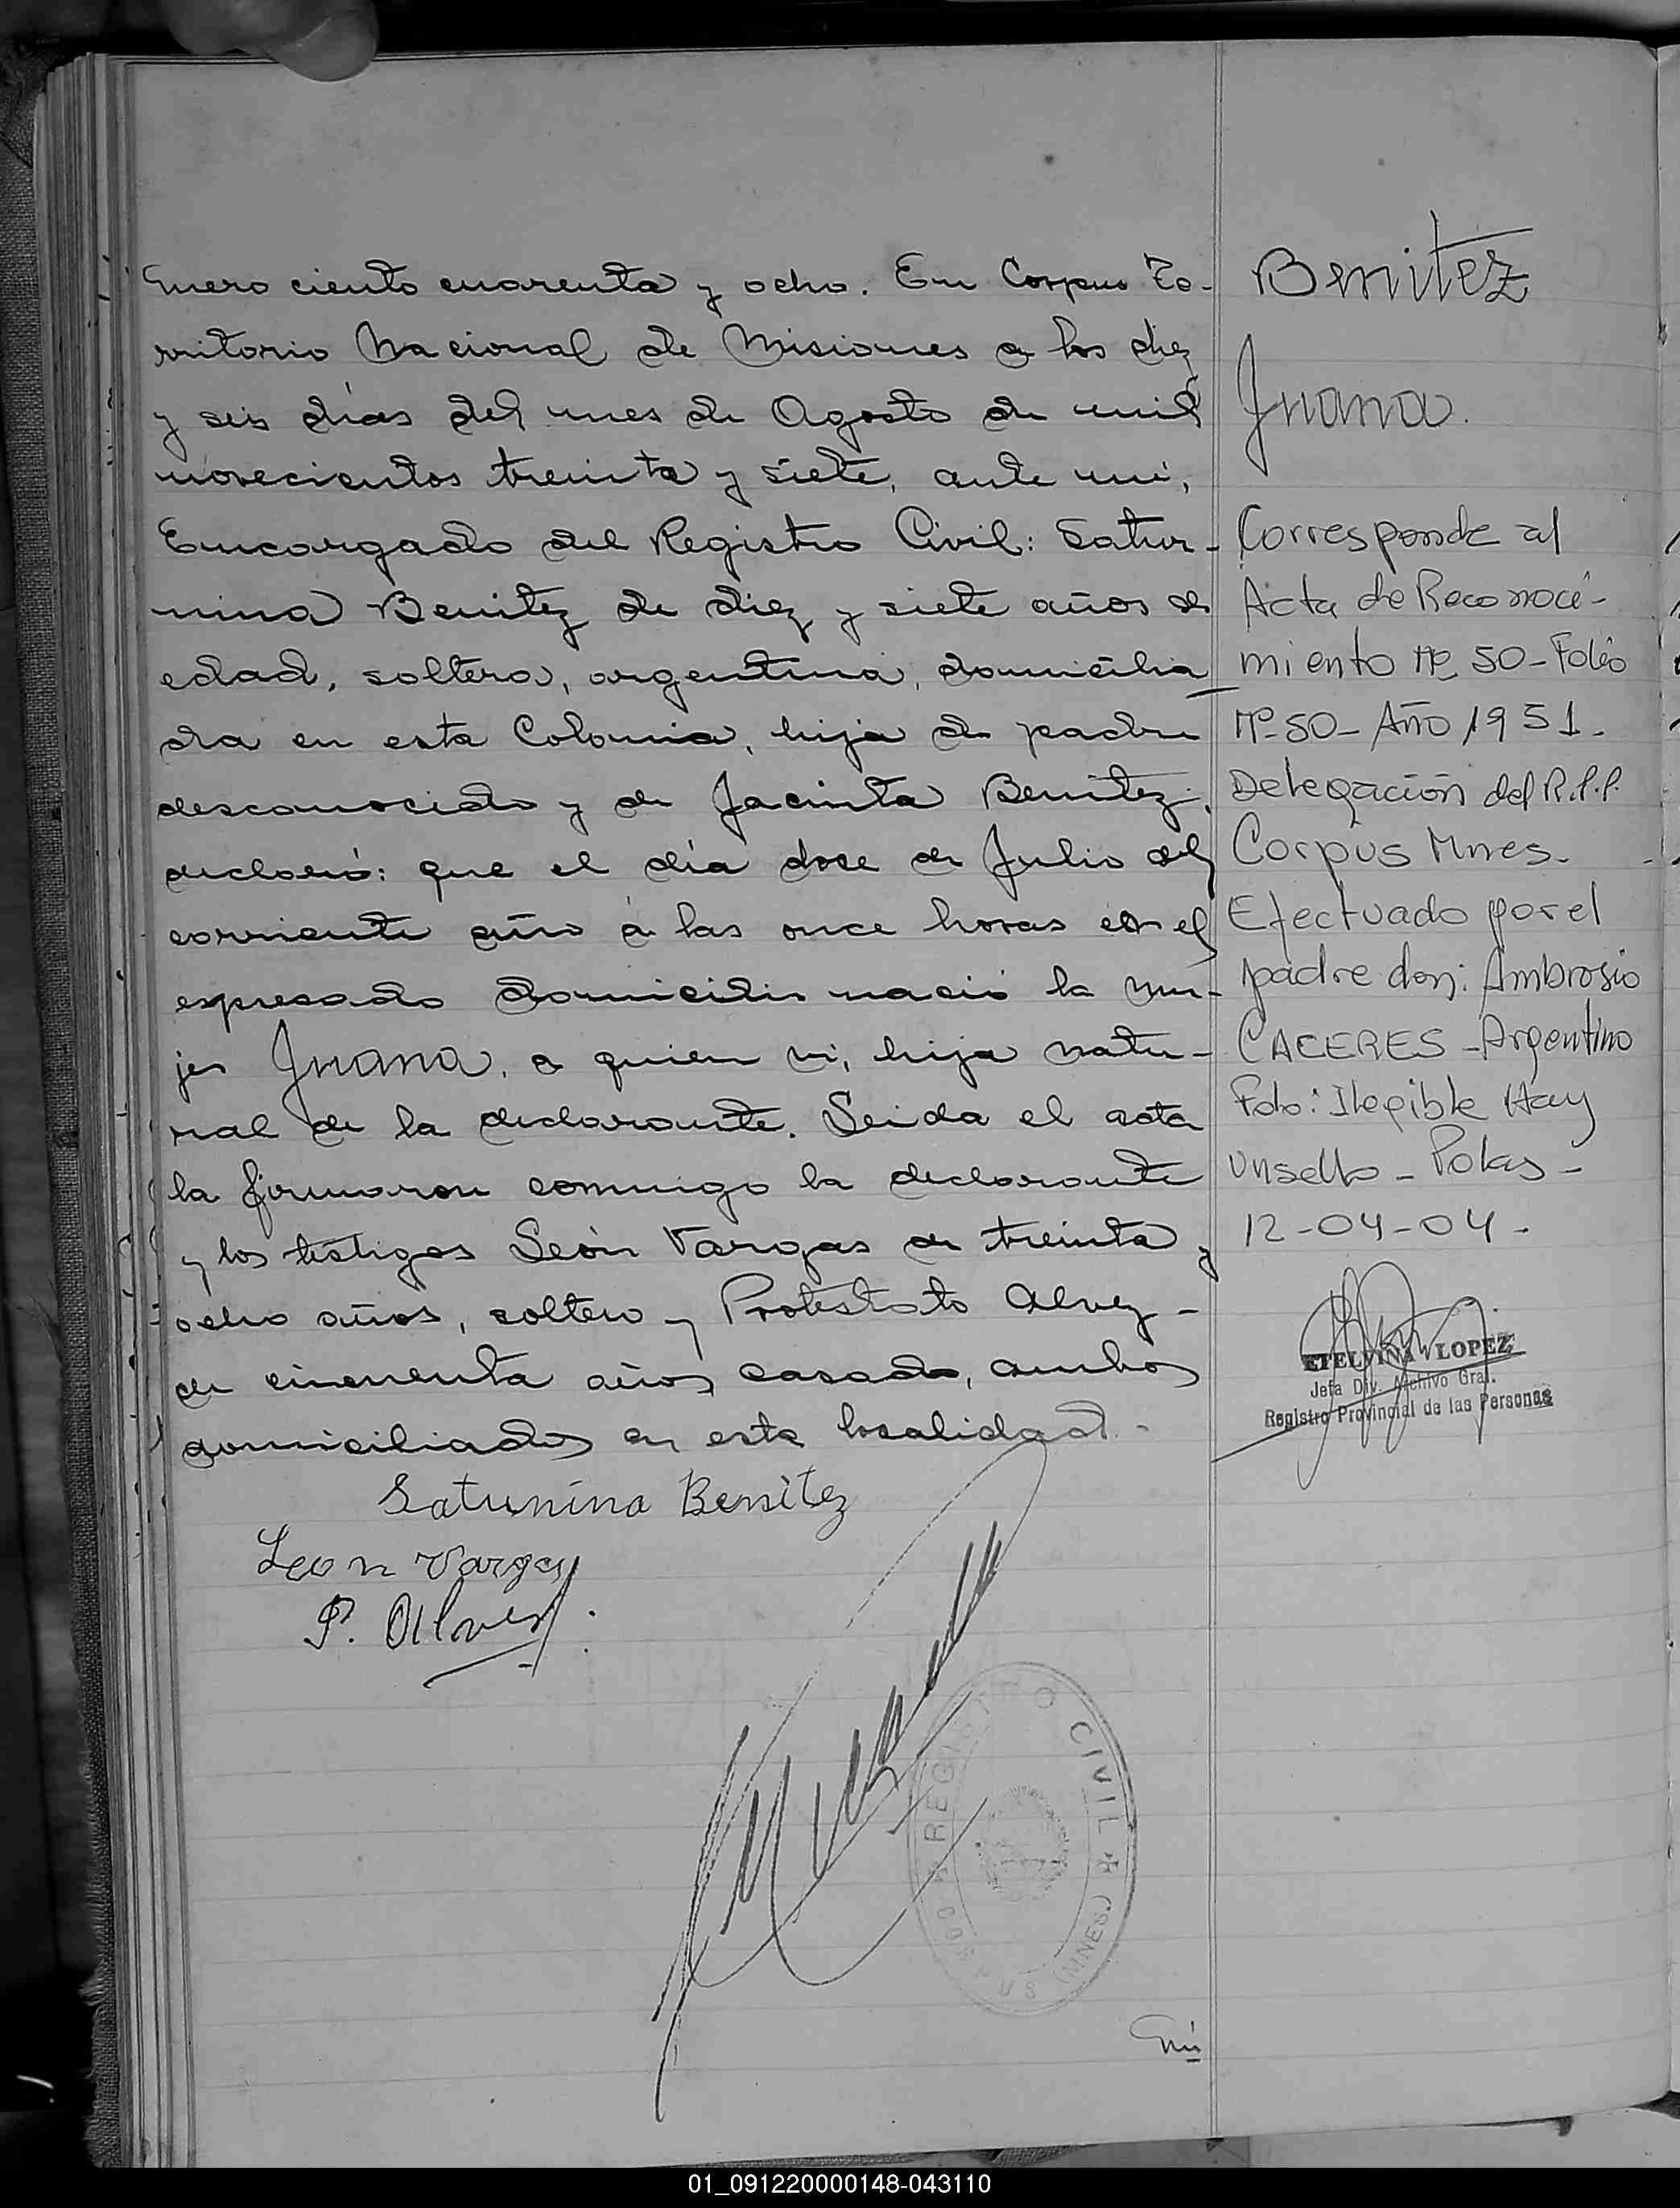 mero ciento cuarenta y ocho. En Corpus Te-
rritorio Nacional de Misiones a los diez
y seis días del mes de Agosto de mil
novecientos treinta y siete, ante mí,
Encargado del Registro Civil: Satur-
nina Benitez de diez y siete años de
edad, soltera, argentina, domicilia
da en esta Colonia, hija de padre
desconocido y de Jacinta Benitez,
declaró: que el día doce de Julio del
corriente año a las once horas en el
expresado domicilio nació la mu-
jer Juana, a quien vi, hija natu-
ral de la declarante. Leida el acta
la firmaron conmigo la declarante
y los testigos León Vargas de treinta y
ocho años, soltero y Protestato Alvez -
de cincuenta años casado, ambos
domiciliados en esta localidad. -
Saturnina Benitez
Leon Vargas
P. Alves
REGISTRO CIVIL
CORPUS (MNES.)
Benitez
Juana.
Corresponde al
Acta de Reconoci-
miento Nº 50 - Folio
Nº 50 - Año 1951 -
Delegación del R.P.P.
Corpus Mnes.
Efectuado por el
padre don: Ambrosio
CACERES - Argentino
Fdo: Ilegible Hay
un sello - Pdas -
12-04-04 -
ETELVINA LOPEZ
Jefa Div. Archivo Gral.
Registro Provincial de las Personas
01_091220000148-043110